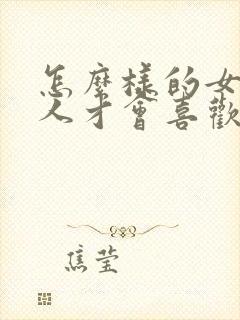 怎麼樣的女
人才會喜歡
焦瑩